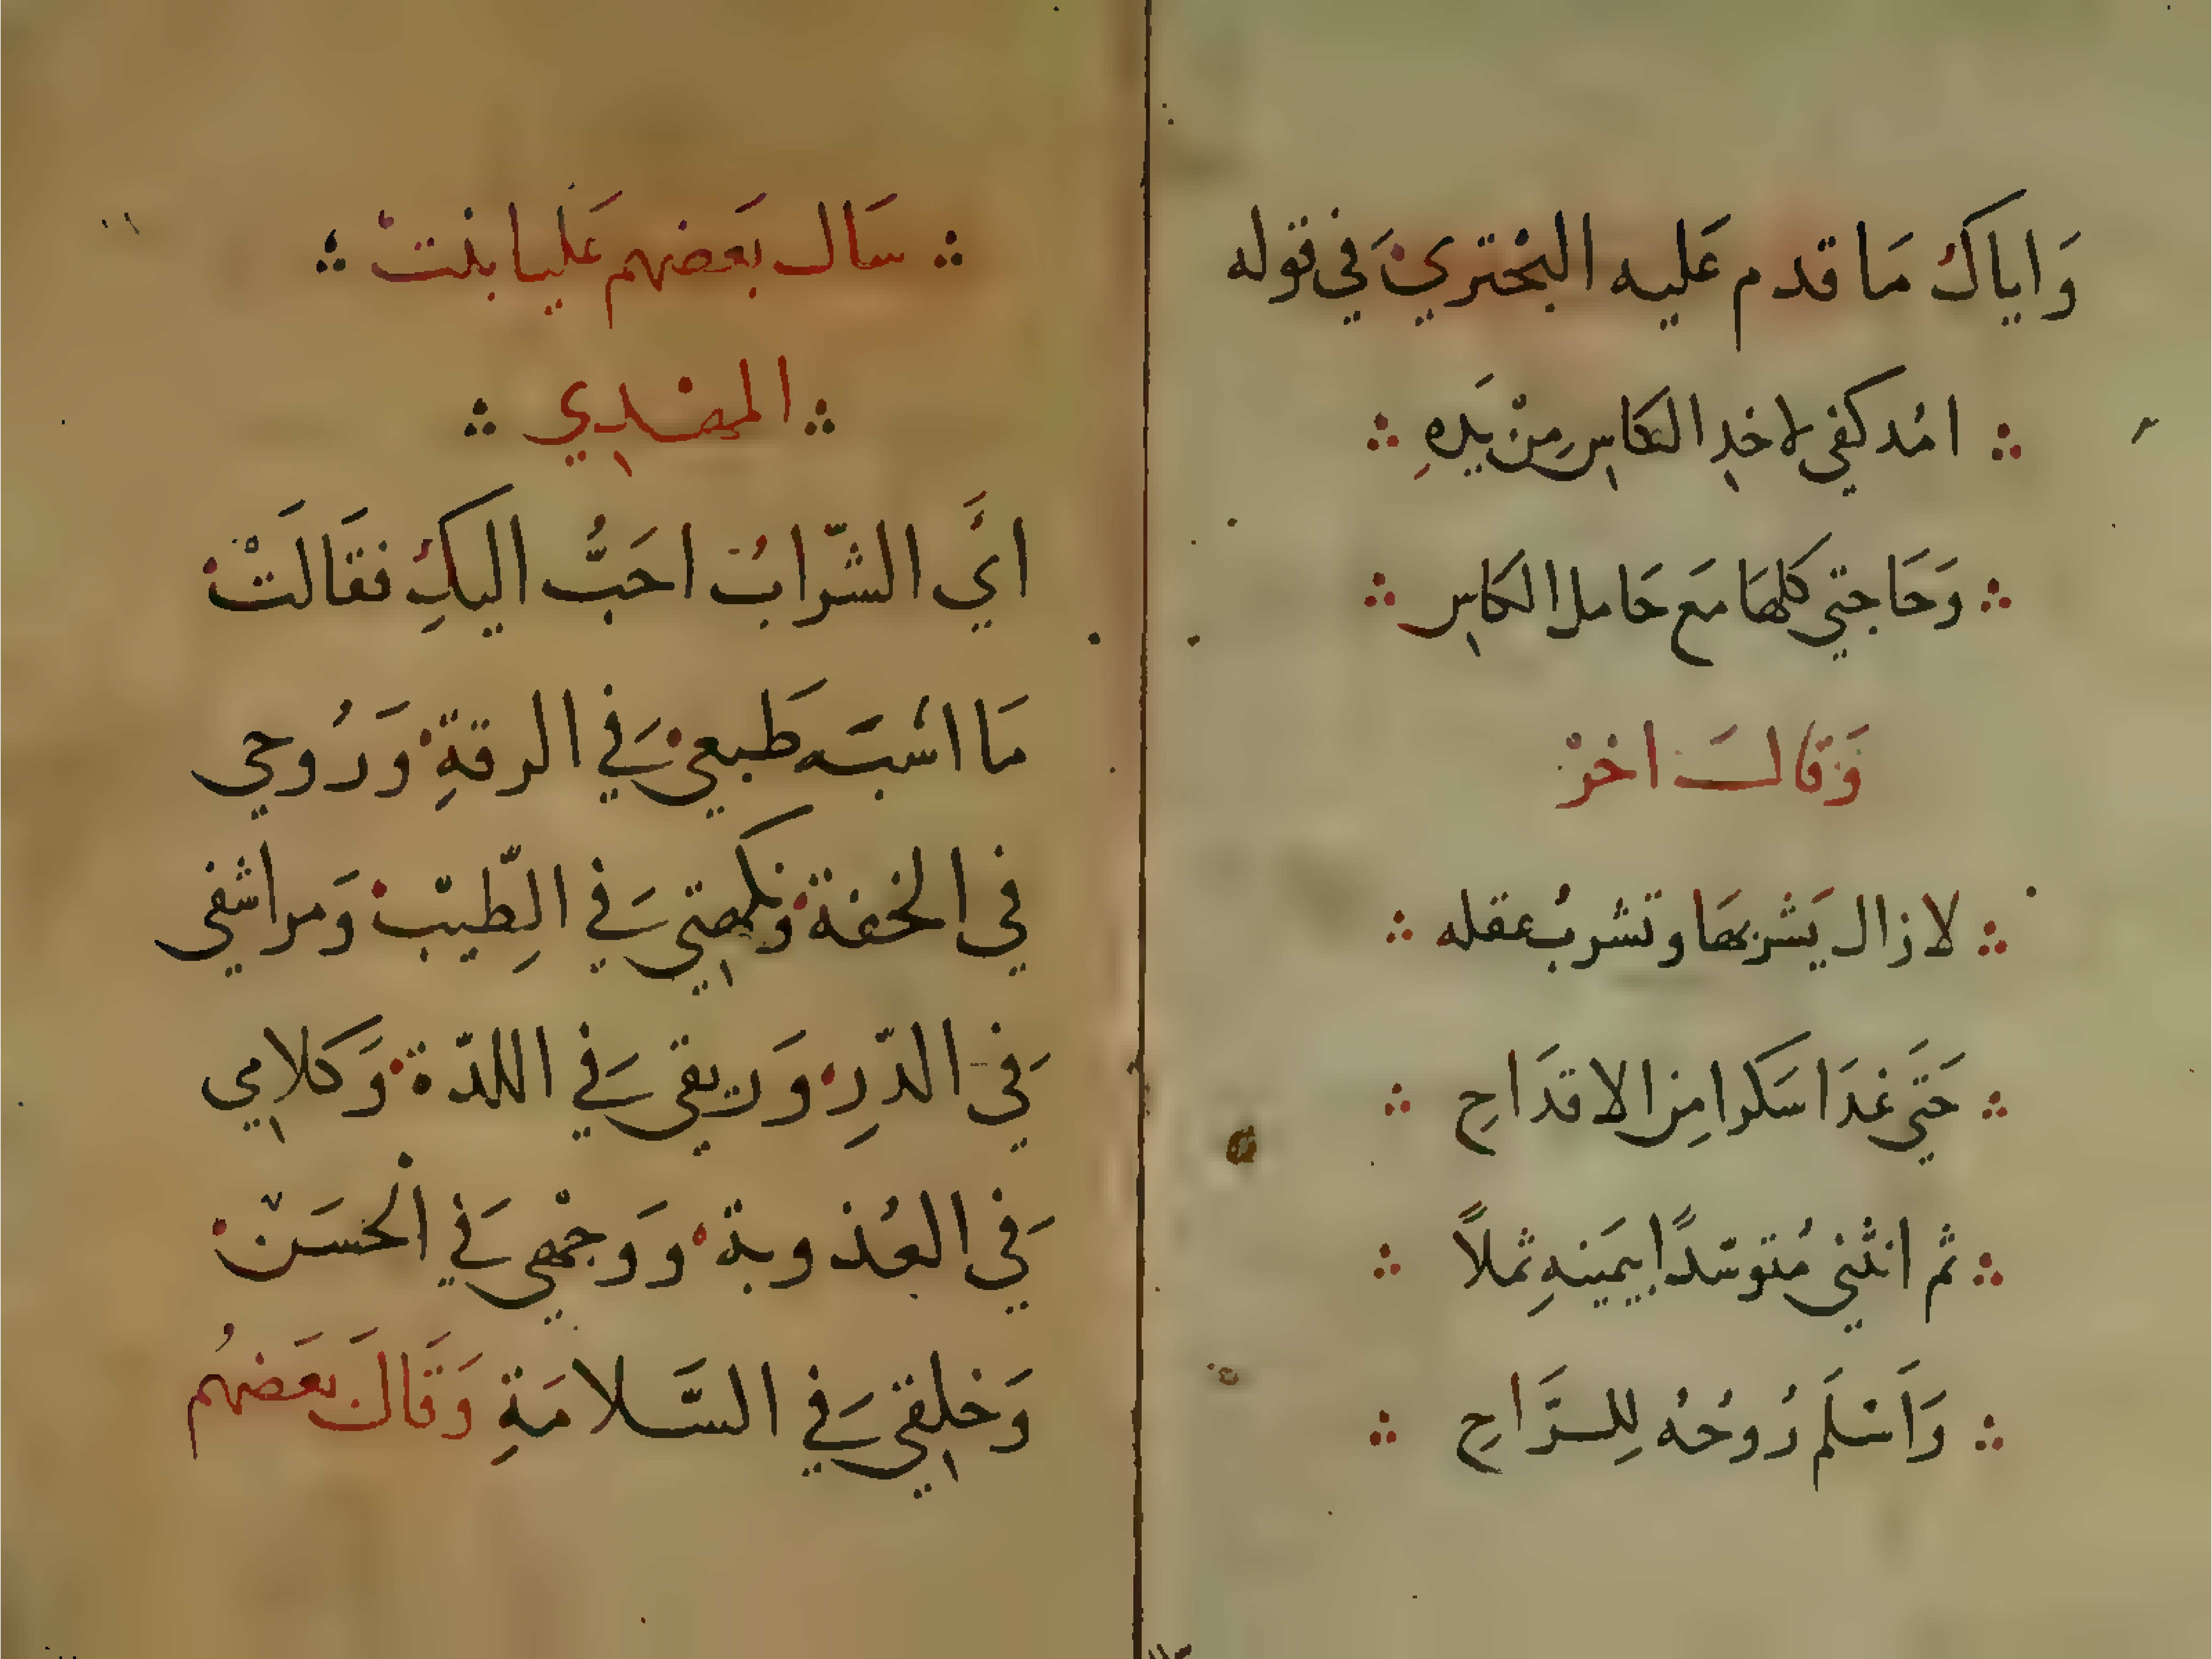 وَاياكَ مَا قدم عَليه البُحْتري في قوله
امُد كفى لاخدِ الكاسِ مِنْ يَدِهِ
وَحَاجتي كلهَا مَع حَامل الكاسِ
وَقالَ اخرْ
لا زال يَشْربهَا وتشربُ عقله
حَتَي غدَا سَكرا مِن الاقدَاحِ
ثم انثني مُتوسّدًا بيَمينهِ ثملاً
وَاَسْلَمَ رُوحُهُ لِلرَّاحِ
سَال بَعضهم عَليا بنتْ
المهدِي
ايَّ الشّرابُ احَبُّ اليكِ فقَالَتْ
مَا اشبَه طَبعي في الرقةِ وَرُوحي
في الخفة ونكهتِي في الطِّيبْ وَمراشفى
في الدّرِ وَريقى في اللدّة وَكلامِي
في العُذوبة وَوَجْهي في الحسَنْ
وَخلِقي في السَّلامَةِ وَقَالَ بعَضهُم